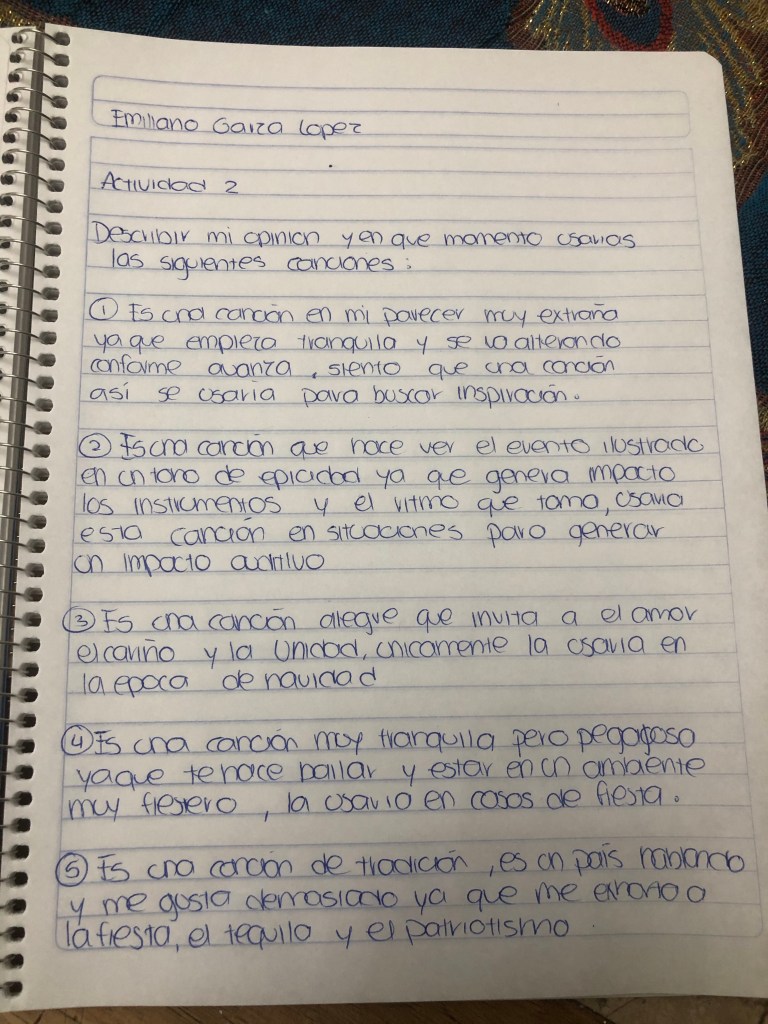 Emiliano Garza Lopez
Actividad 2
Describir mi opinion y en que momento usarias
las siguientes canciones:
① Es una canción en mi parecer muy extraña
ya que empieza tranquila y se va alterando
conforme avanza, siento que una canción
así se usaria para buscar inspiración.
② Es una canción que hace ver el evento ilustrado
en un tono de epicidad ya que genera impacto
los instrumentos y el ritmo que toma, usaria
esta canción en situaciones para generar
un impacto auditivo
③ Es una canción alegre que invita a el amor
el cariño y la Unidad, unicamente la usaria en
la epoca de navidad
④ Es una canción muy tranquila pero pegajosa
ya que te hace bailar y estar en un ambiente
muy fiestero, la usaria en casos de fiesta.
⑤ Es una canción de tradición, es un país hablando
y me gusta demasiado ya que me a
la fiesta, el tequila y el patriotismo